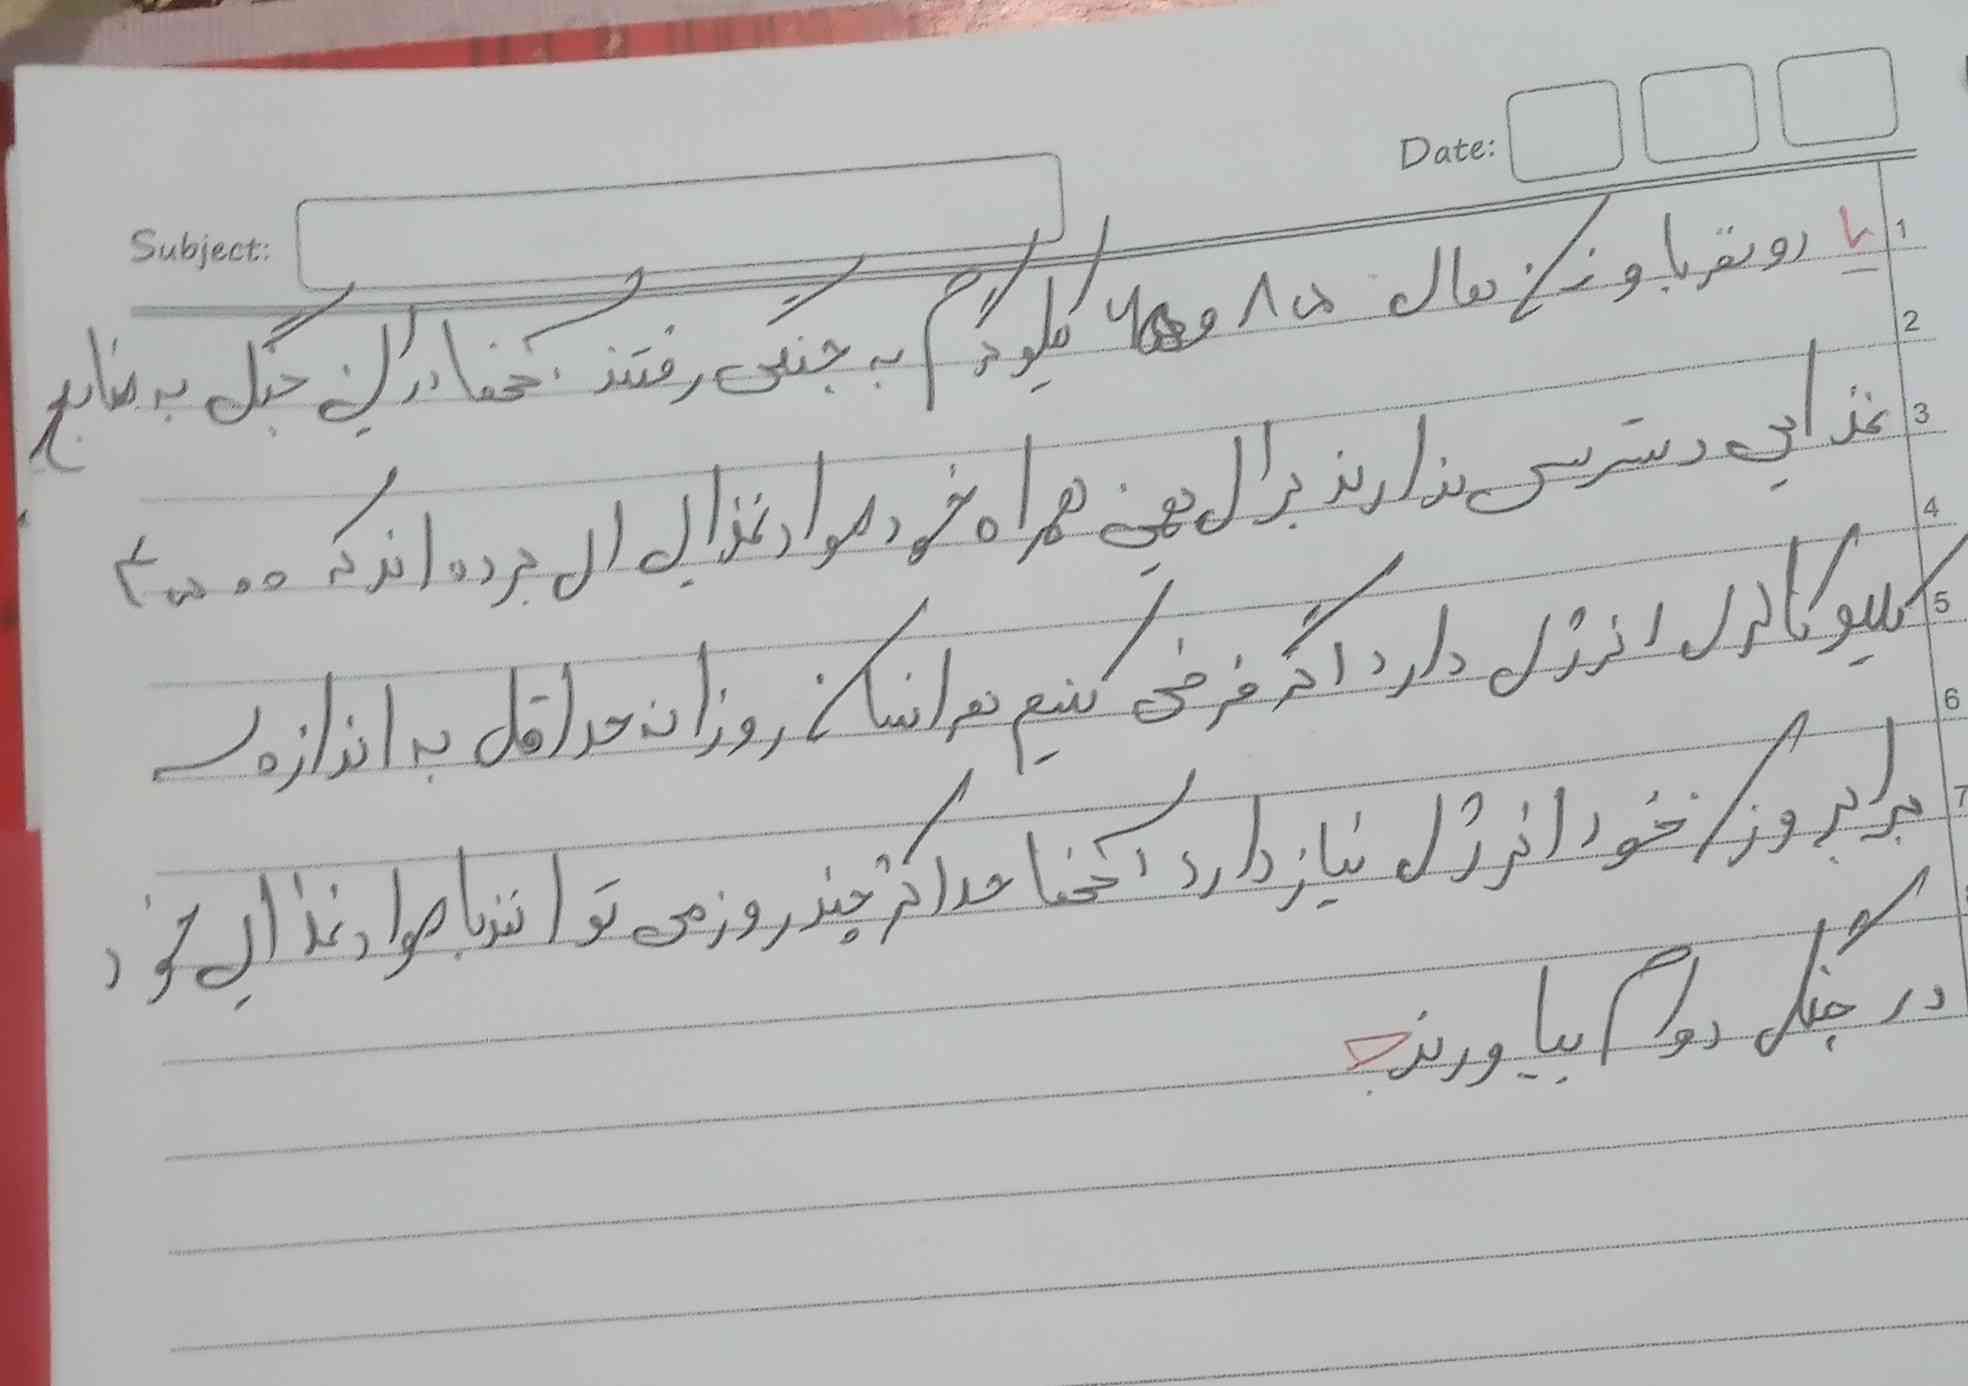 Date:
Subject:
1 دو نفر با وزن های ۸۵ و ۶۵ کیلوگرم به جنگلی رفتند. آنها در این جنگل به منابع
2
3 غذایی دسترسی ندارند برای همین همراه خود مواد غذایی ای برده اند که ۴۵۰۰
4
5 کیلوکالری انرژی دارد اگر فرض کنیم هر انسان روزانه حداقل به اندازه ی
6
7 برابر وزن خود انرژی نیاز دارد آنها حداکثر چند روز می توانند با مواد غذایی خود
در جنگل دوام بیاورند